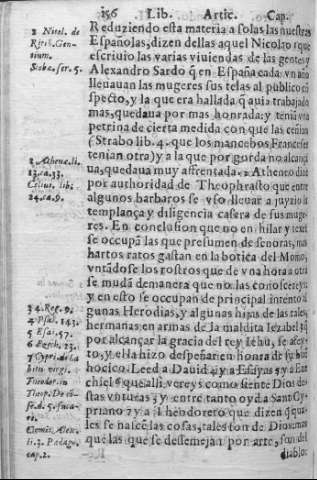 156 Lib. Artic. Cap.
Reduziendo esta materia a solas las nuestras
Españolas, dizen dellas aquel Nicolao
escriuio las varias viuiendas de las gentes, y
Alexandro Sardo, q̃ en España cada vn año
lleuauan las mugeres sus telas al publico
specto, y la que era hallada q̃ auia trabajado
mas, quedaua por mas honrada: y teniã vna
petrina de cierta medida con que las
(Strabo lib. 4. que los mancebos Franceses
tenian otra) y a la que por gorda no
ua, quedaua muy affrentada. Atheneo dize
por authoridad de Theophrasto que entre
algunos barbaros se vso lleuar a juyzio la
templança, y diligencia casera de sus muge-
res. En conclusion que no en hilar y texer
se occupã las que presumen de señoras, mas
hartos ratos gastan en la botica del Moño,
vntãdose los rostros que de vna hora a otra
se mudã demanera que no las conocereys
y en esto se occupan de principal intento
gunas Herodias, y algunas hijas de las
hermanas en armas de la maldita Iezabel
por alcançar la gracia del rey Iehu, se
to, y el la hizo despeñar en honra de su
hocico. Leed a Dauid, y a Esayas, y a Eze-
chiel que alli vereys como siente Dios des-
tas vnturas, y entre tanto oyd a Sant Cy-
priano, y a Theodoreto que dizen
les se nalcẽ las cosas, tales son de Dios, mas
que las que se dessemejan por arte, son del
diablo:
2 Nicol. de
Ritib. Gen-
tium.
Stobæ. ser. 5.
2 Athenæ. li.
13. ca. 33.
Celius. libi.
24. ca. 9.
3 4. Reg. 9.
4 Psal. 143.
5 Esai. 57.
6 Ezech. 23.
7 Cypri. de ha
bitu virgi.
Theodor. in
Theop. De co-
se. d. 5. fuca-
re.
Clemẽs. Alex.
li. 3. Pædago.
cap. 2.